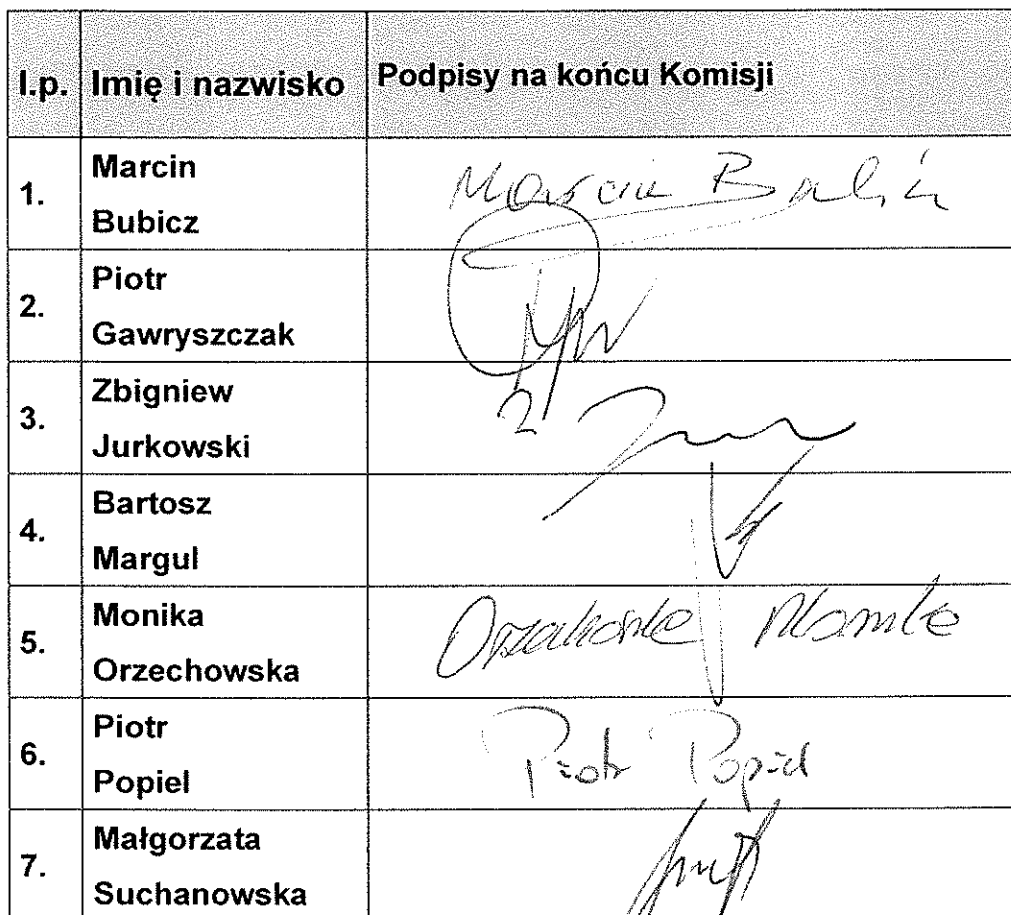 l.p. Imię i nazwisko Podpisy na końcu Komisji
1. Marcin Bubicz Marcin
2. Piotr Gawryszczak
3. Zbigniew Jurkowski
4. Bartosz Margul
5. Monika Orzechowska
6. Piotr Popiel Piotr Popiel
7. Małgorzata Suchanowska